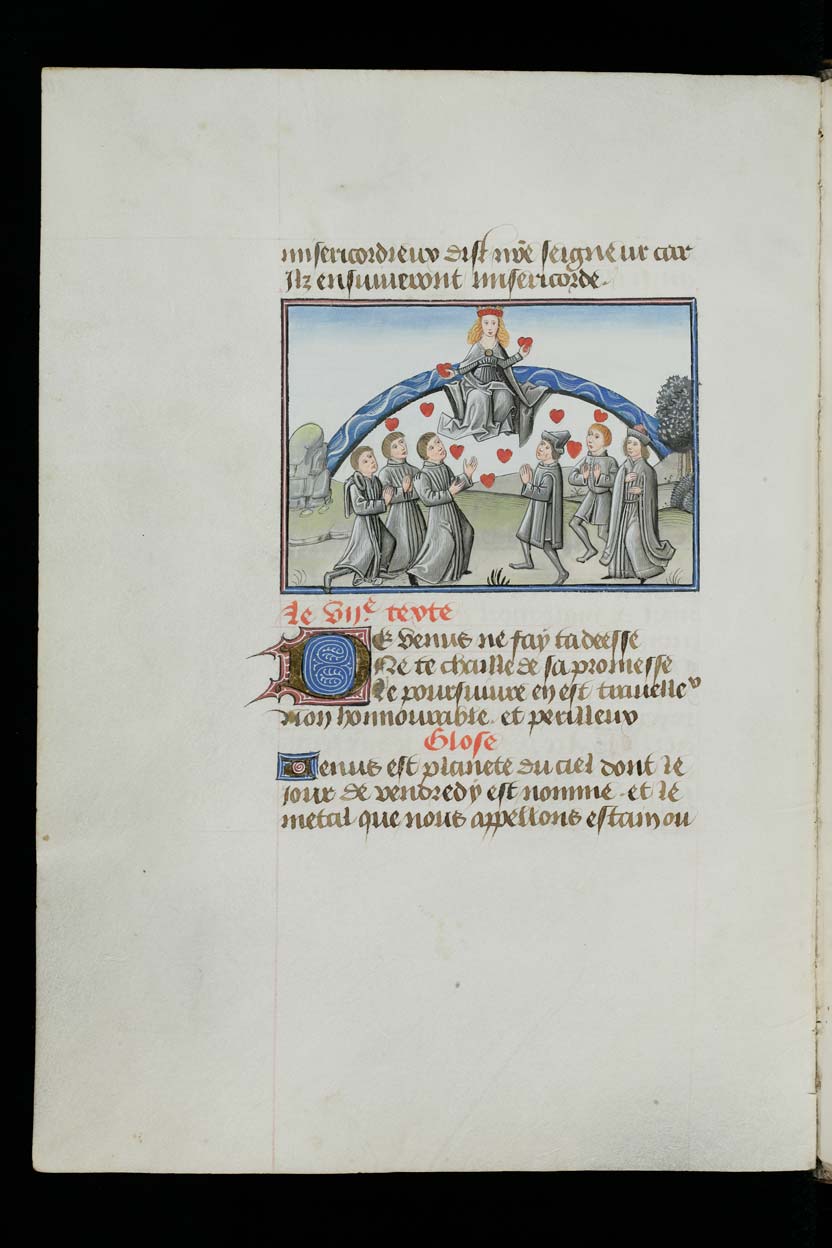 misericordieux dist nr̃e seigneur car
Ilz ensuiueront misericorde.
Le vije texte
De venus ne fay ta deesse
Ne te chaille de sa promesse
Le poursuiure en est trauelleux
Non honnourable. et perilleux
Glose
Venus est planete du ciel dont le
jour de vendredy est nomme. et le
metal que nous appellons estain ou